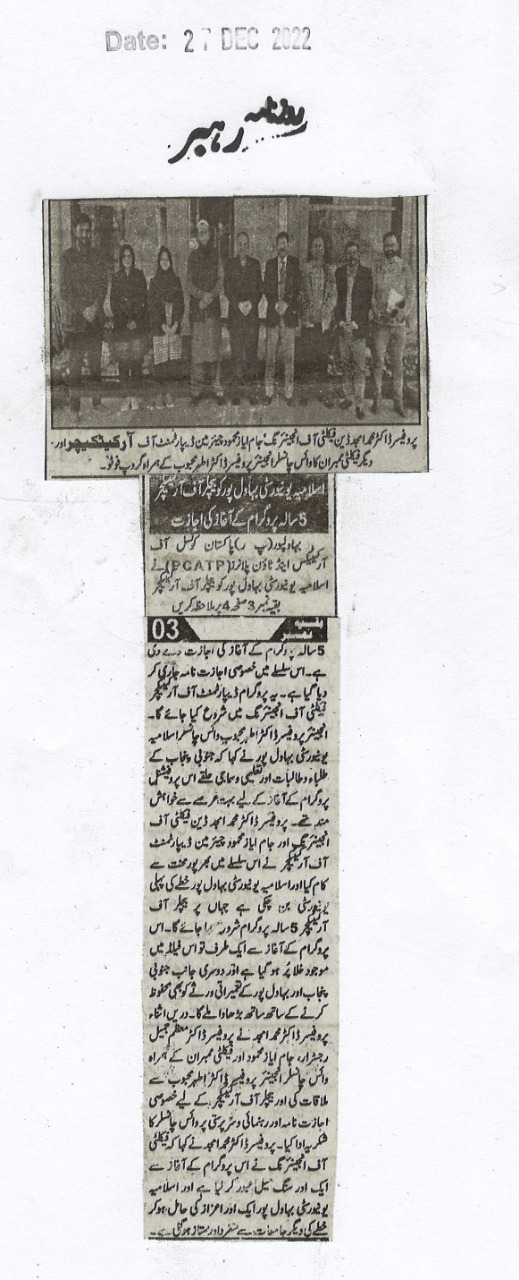 Date: 27 DEC 2022
روزنامہ رہبر
پروفیسر ڈاکٹر محمد امجد ڈین فیکلٹی آف انجینئرنگ جام ایاز محمود چیئرمین ڈیپارٹمنٹ آف آرکیٹیکچر اور
دیگر فیکلٹی ممبران کا وائس چانسلر انجینئر پروفیسر ڈاکٹر اطہر محبوب کے ہمراہ گروپ فوٹو۔
اسلامیہ یونیورسٹی بہاول پور کو بیچلر آف آرکیٹیکچر
5 سالہ پروگرام کے آغاز کی اجازت
بہاولپور (پ ر) پاکستان کونسل آف
آرکیٹیکٹس اینڈ ٹاؤن پلانرز (PCATP) نے
اسلامیہ یونیورسٹی بہاول پور کو بیچلر آف آرکیٹیکچر
بقیہ نمبر 3 صفحہ 4 پر ملاحظہ کریں
بقیہ نمبر 03
5 سالہ پروگرام کے آغاز کی اجازت دے دی
ہے۔ اس سلسلے میں خصوصی اجازت نامہ جاری کر
دیا گیا ہے۔ یہ پروگرام ڈیپارٹمنٹ آف آرکیٹیکچر
فیکلٹی آف انجینئرنگ میں شروع کیا جائے گا۔
انجینئر پروفیسر ڈاکٹر اطہر محبوب وائس چانسلر اسلامیہ
یونیورسٹی بہاول پور نے کہا کہ جنوبی پنجاب کے
طلباء و طالبات اور تعلیمی و سماجی حلقے اس پروفیشنل
پروگرام کے آغاز کے لیے بہت عرصے سے خواہش
مند تھے۔ پروفیسر ڈاکٹر محمد امجد ڈین فیکلٹی آف
انجینئرنگ اور جام ایاز محمود چیئرمین ڈیپارٹمنٹ
آف آرکیٹیکچر نے اس سلسلے میں بھرپور محنت سے
کام کیا اور اسلامیہ یونیورسٹی بہاول پور خطے کی پہلی
یونیورسٹی بن چکی ہے جہاں پر بیچلر آف
آرکیٹیکچر 5 سالہ پروگرام شروع جائے گا۔ اس
پروگرام کے آغاز سے ایک طرف تو اس فیلڈ میں
موجود خلا پُر ہو گیا ہے اور دوسری جانب جنوبی
پنجاب اور بہاول پور کے تعمیراتی ورثے کو بھی محفوظ
کرنے کے ساتھ ساتھ بڑھاوا ملے گا۔ دریں اثناء
پروفیسر ڈاکٹر محمد امجد نے پروفیسر ڈاکٹر معظم جمیل
رجسٹرار، جام ایاز محمود اور فیکلٹی ممبران کے ہمراہ
وائس چانسلر انجینئر پروفیسر ڈاکٹر اطہر محبوب سے
ملاقات کی اور بیچلر آف آرکیٹیکچر کے لیے خصوصی
اجازت نامہ اور رہنمائی و سرپرستی پر وائس چانسلر کا
شکریہ ادا کیا۔ پروفیسر ڈاکٹر محمد امجد نے کہا کہ فیکلٹی
آف انجینئرنگ نے اس پروگرام کے آغاز سے
ایک اور سنگ میل عبور کر لیا ہے اور اسلامیہ
یونیورسٹی بہاول پور ایک اور اعزاز کی حامل ہو کر
خطے کی دیگر جامعات سے منفرد اور ممتاز ہو گئی ہے۔